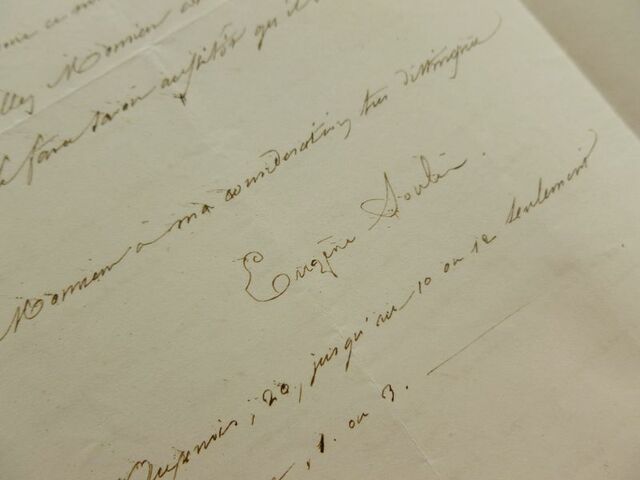 Monsieur
faire savoir aussitôt qu'il
Monsieur à ma considération très distinguée
Eugène Soulier.
20, jusqu'au 10 ou 12 seulement
, 1. ou 3.